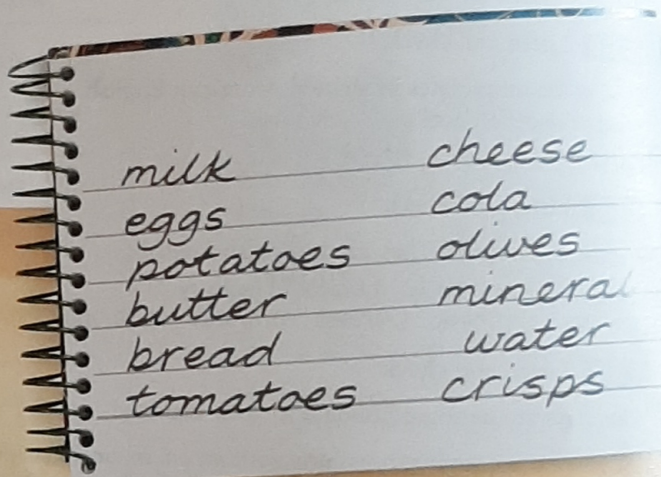 milk
eggs
potatoes
butter
bread
tomatoes
cheese
cola
olives
mineral
water
crisps